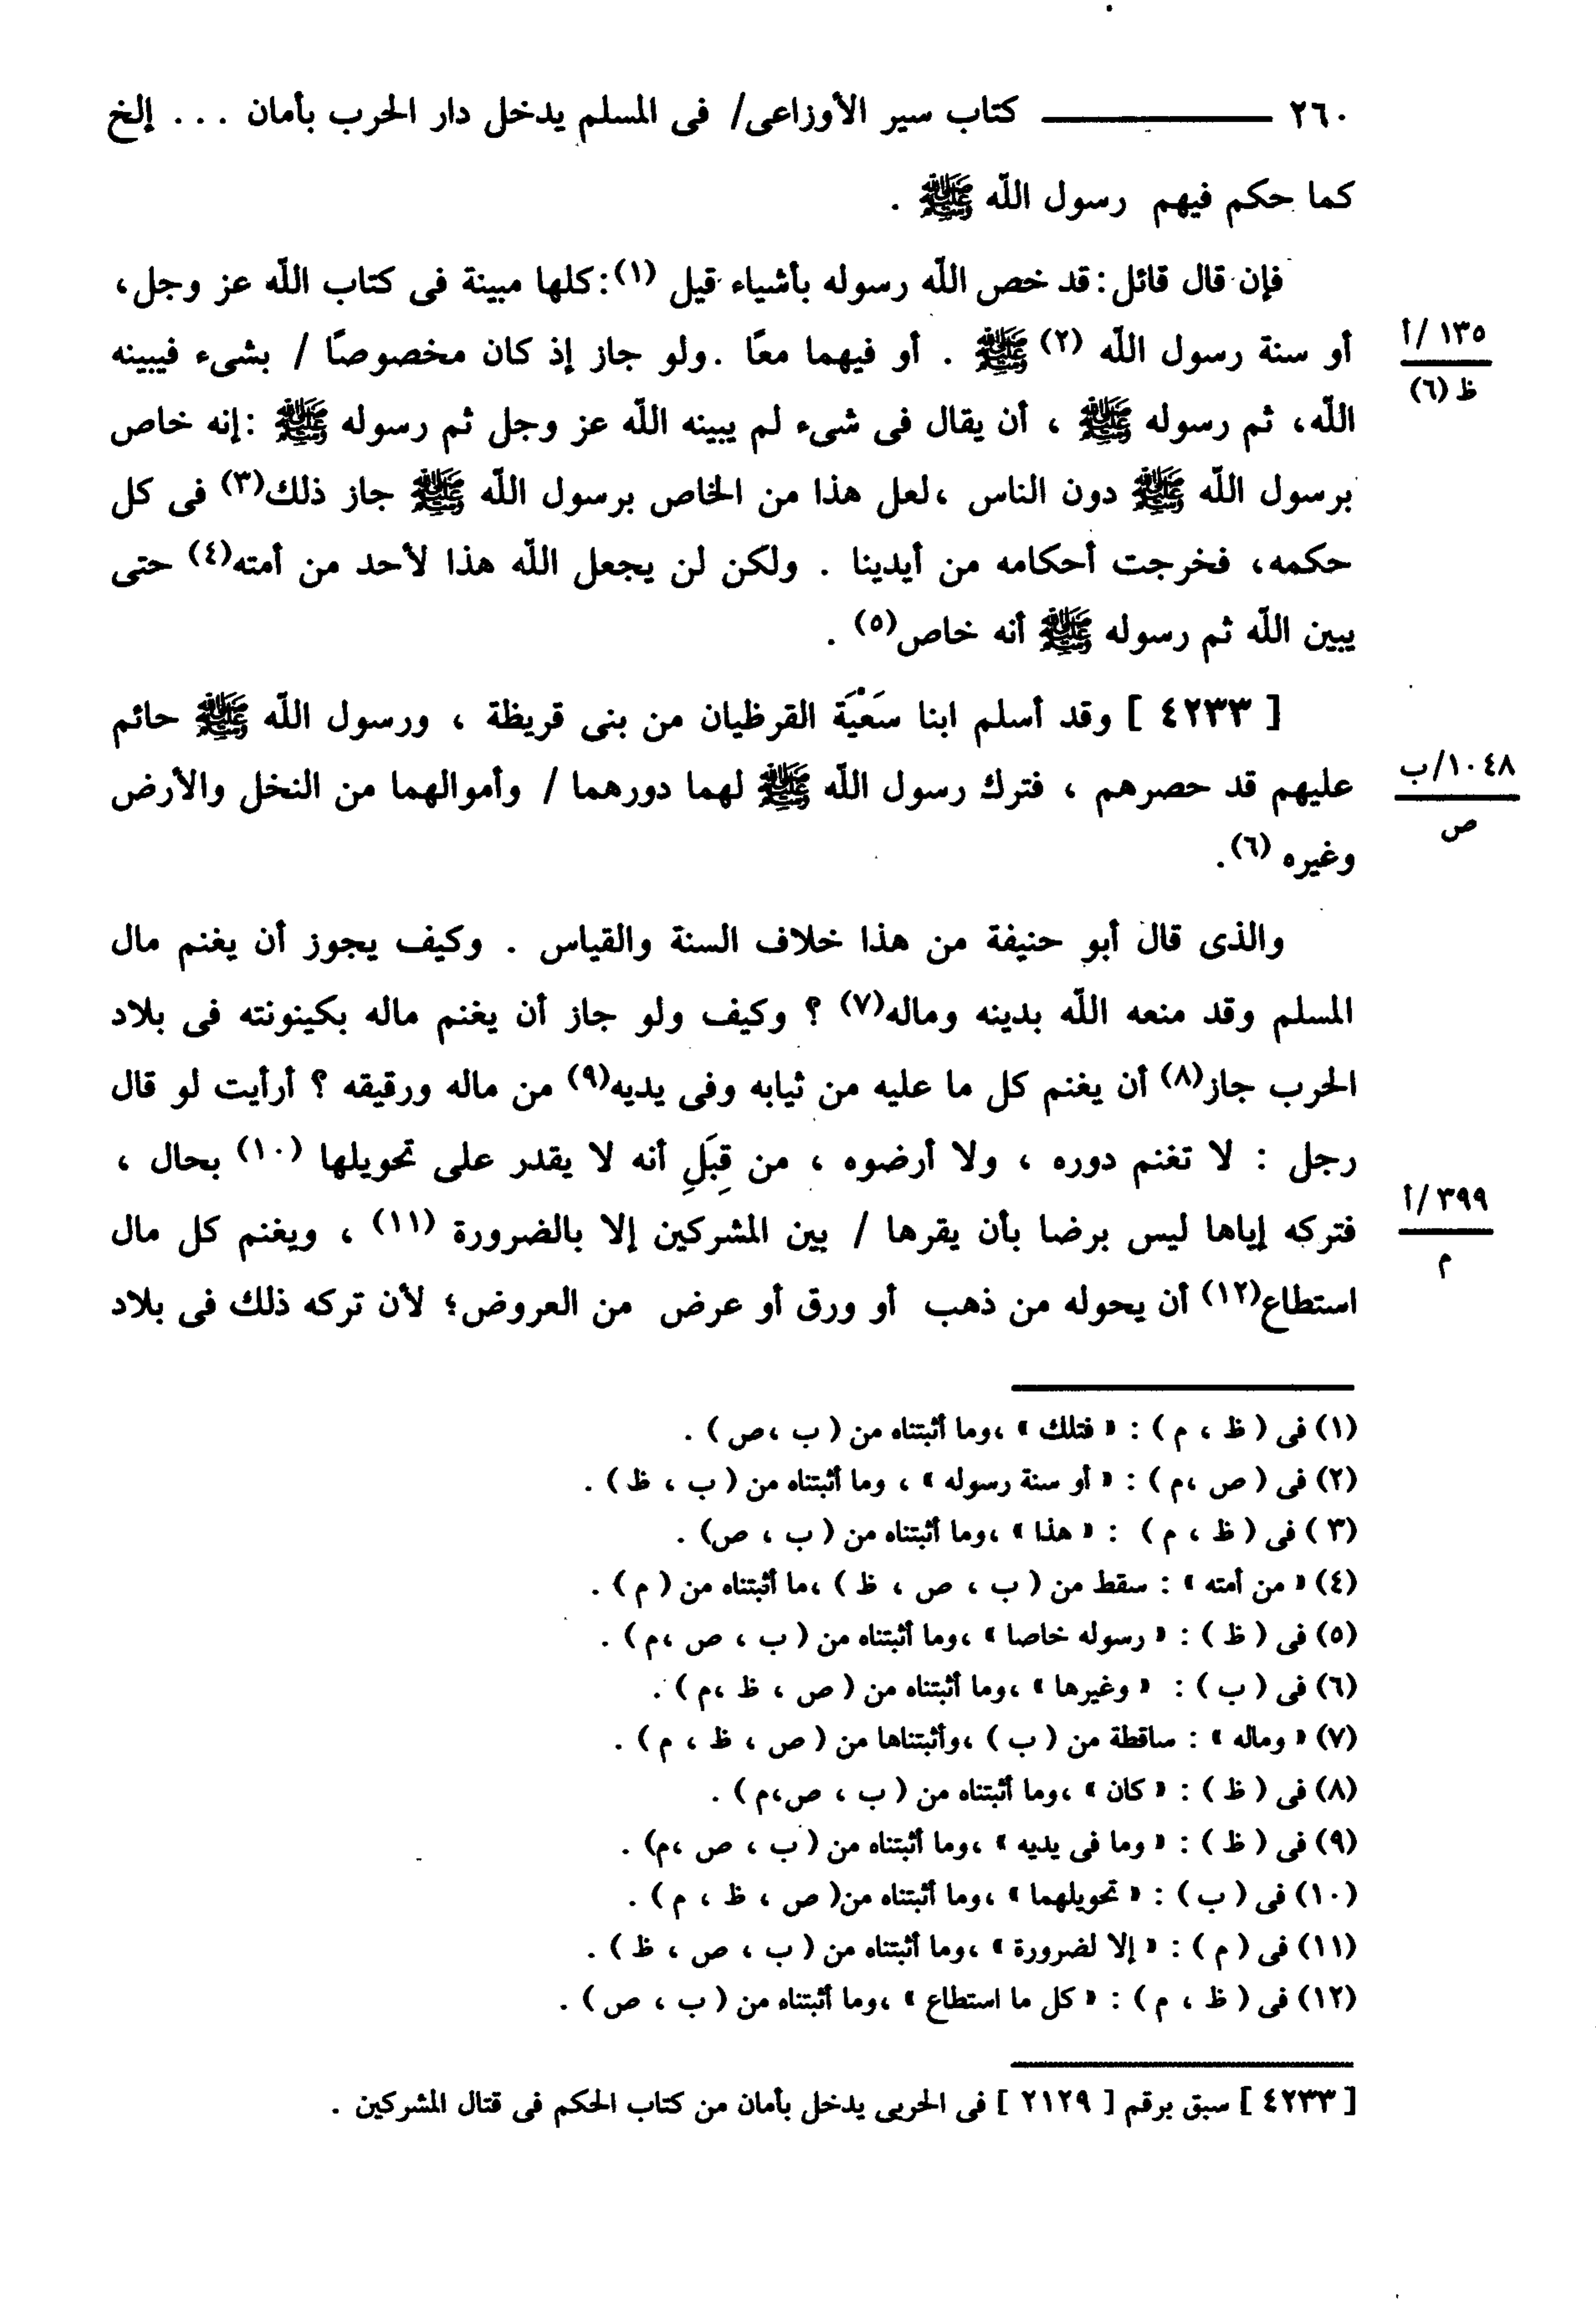 ٢٦٠ ــــــــــ كتاب سير الأوزاعى/ فى المسلم يدخل دار الحرب بأمان . . . إلخ
كما حكم فيهم رسول الله ﷺ .
فإن قال قائل : قد خص الله رسوله بأشياء قيل (١) : كلها مبينة فى كتاب الله عز وجل،
أو سنة رسول الله (٢) ﷺ . أو فيهما معًا . ولو جاز إذ كان مخصوصًا / بشىء فيبينه
١٣٥/أ
ظ (٦)
الله، ثم رسوله ﷺ ، أن يقال فى شىء لم يبينه الله عز وجل ثم رسوله ﷺ : إنه خاص
برسول الله ﷺ دون الناس ، لعل هذا من الخاص برسول الله ﷺ جاز ذلك(٣) فى كل
حكمه، فخرجت أحكامه من أيدينا . ولكن لن يجعل الله هذا لأحد من أمته(٤) حتى
يبين الله ثم رسوله ﷺ أنه خاص(٥) .
[ ٤٢٣٣ ] وقد أسلم ابنا سَعْيَة القرظيان من بنى قريظة ، ورسول الله ﷺ حائم
عليهم قد حصرهم ، فترك رسول الله ﷺ لهما دورهما / وأموالهما من النخل والأرض
١٠٤٨/ب
ص
وغيره (٦).
والذى قال أبو حنيفة من هذا خلاف السنة والقياس . وكيف يجوز أن يغنم مال
المسلم وقد منعه الله بدينه وماله(٧) ؟ وكيف ولو جاز أن يغنم ماله بكينونته فى بلاد
الحرب جاز(٨) أن يغنم كل ما عليه من ثيابه وفى يديه(٩) من ماله ورقيقه ؟ أرأيت لو قال
رجل : لا تغنم دوره ، ولا أرضوه ، من قِبَلِ أنه لا يقدر على تحويلها (١٠) بحال ،
فتركه إياها ليس برضا بأن يقرها / بين المشركين إلا بالضرورة (١١) ، ويغنم كل مال
٣٩٩/أ
م
استطاع(١٢) أن يحوله من ذهب أو ورق أو عرض من العروض؛ لأن تركه ذلك فى بلاد
(١) فى ( ظ ، م ) : « فتلك » ،وما أثبتناه من ( ب ،ص ) .
(٢) فى ( ص ،م ) : « أو سنة رسوله » ، وما أثبتناه من ( ب ، ظ ) .
(٣ ) فى ( ظ ، م ) : « هذا » ،وما أثبتناه من ( ب ، ص) .
(٤) « من أمته » : سقط من ( ب ، ص ، ظ ) ،ما أثبتناه من ( م ) .
(٥) فى ( ظ ) : « رسوله خاصا » ،وما أثبتناه من ( ب ، ص ،م ) .
(٦) فى ( ب ) : « وغيرها » ،وما أثبتناه من ( ص ، ظ ،م ) .
(٧) « وماله » : ساقطة من ( ب ) ،وأثبتناها من ( ص ، ظ ، م ) .
(٨) فى ( ظ ) : « كان » ،وما أثبتناه من ( ب ، ص،م ) .
(٩) فى ( ظ ) : « وما فى يديه » ،وما أثبتناه من ( ب ، ص ،م) .
(١٠) فى ( ب ) : « تحويلهما » ،وما أثبتناه من( ص ، ظ ، م ) .
(١١) فى ( م ) : « إلا لضرورة » ،وما أثبتناه من ( ب ، ص ، ظ ) .
(١٢) فى ( ظ ، م ) : « كل ما استطاع » ،وما أثبتناه من ( ب ، ص ) .
[ ٤٢٣٣ ] سبق برقم [ ٢١٢٩ ] فى الحربى يدخل بأمان من كتاب الحكم فى قتال المشركين .